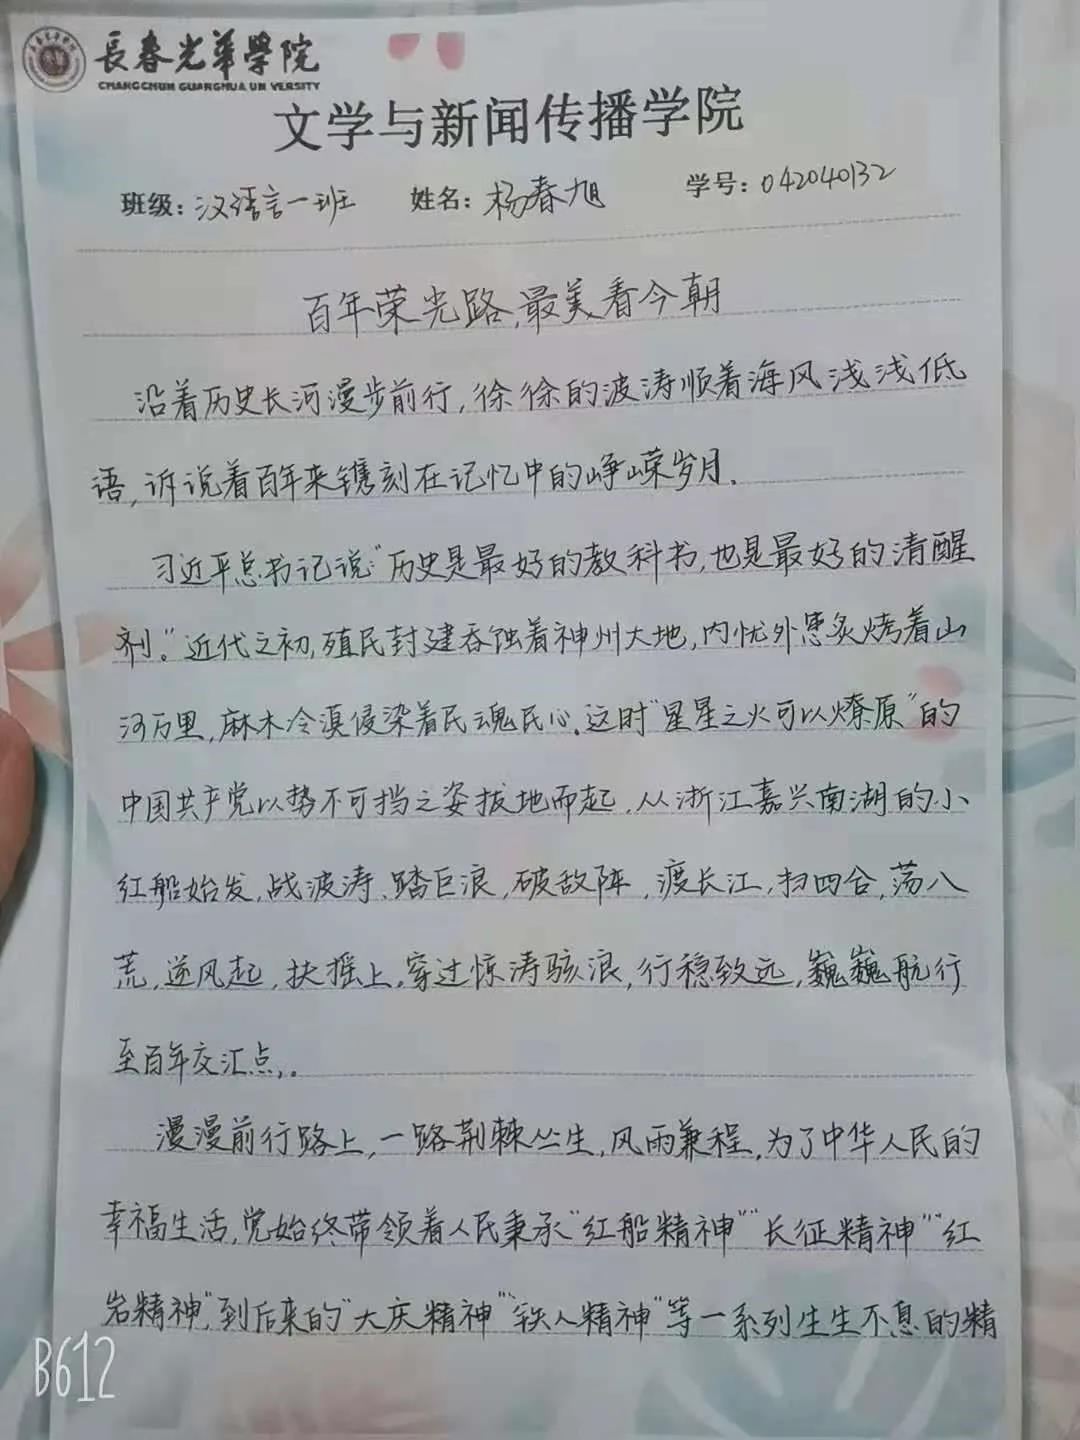 長春光華學院
CHANGCHUN GUANGHUA UN VERSITY
文学与新闻传播学院
班级：汉语言一班 姓名：杨春旭 学号：042040132
百年荣光路，最美看今朝
沿着历史长河漫步前行，徐徐的波涛顺着海风浅浅低
语，诉说着百年来镌刻在记忆中的峥嵘岁月．
习近平总书记说“历史是最好的教科书，也是最好的清醒
剂。”近代之初，殖民封建吞蚀着神州大地，内忧外患炙烤着山
河万里，麻木冷漠侵染着民魂民心．这时“星星之火可以燎原”的
中国共产党以势不可挡之姿拔地而起．从浙江嘉兴南湖的小
红船始发，战波涛、踏巨浪，破敌阵，渡长江，扫四合，荡八
荒，逆风起，扶摇上，穿过惊涛骇浪，行稳致远，巍巍航行
至百年交汇点，．
漫漫前行路上，一路荆棘丛生，风雨兼程，为了中华人民的
幸福生活，党始终带领着人民秉承“红船精神”“长征精神”“红
岩精神”，到后来的“大庆精神”“铁人精神”等一系列生生不息的精
B612